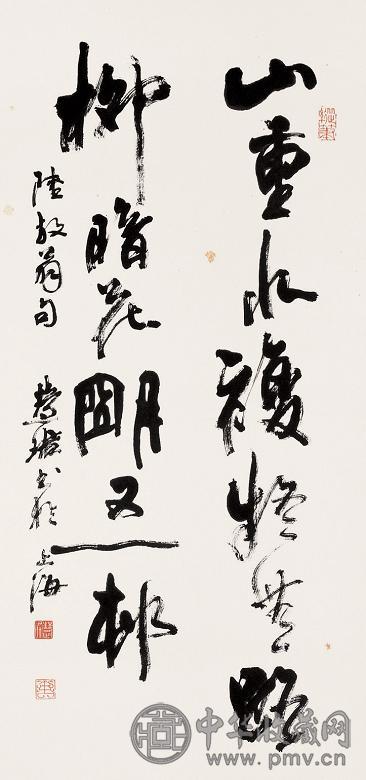 山重水複疑無路
柳暗花朙又一邨
陸放翁句
书於上海
中华收藏网
www.pmv.cn